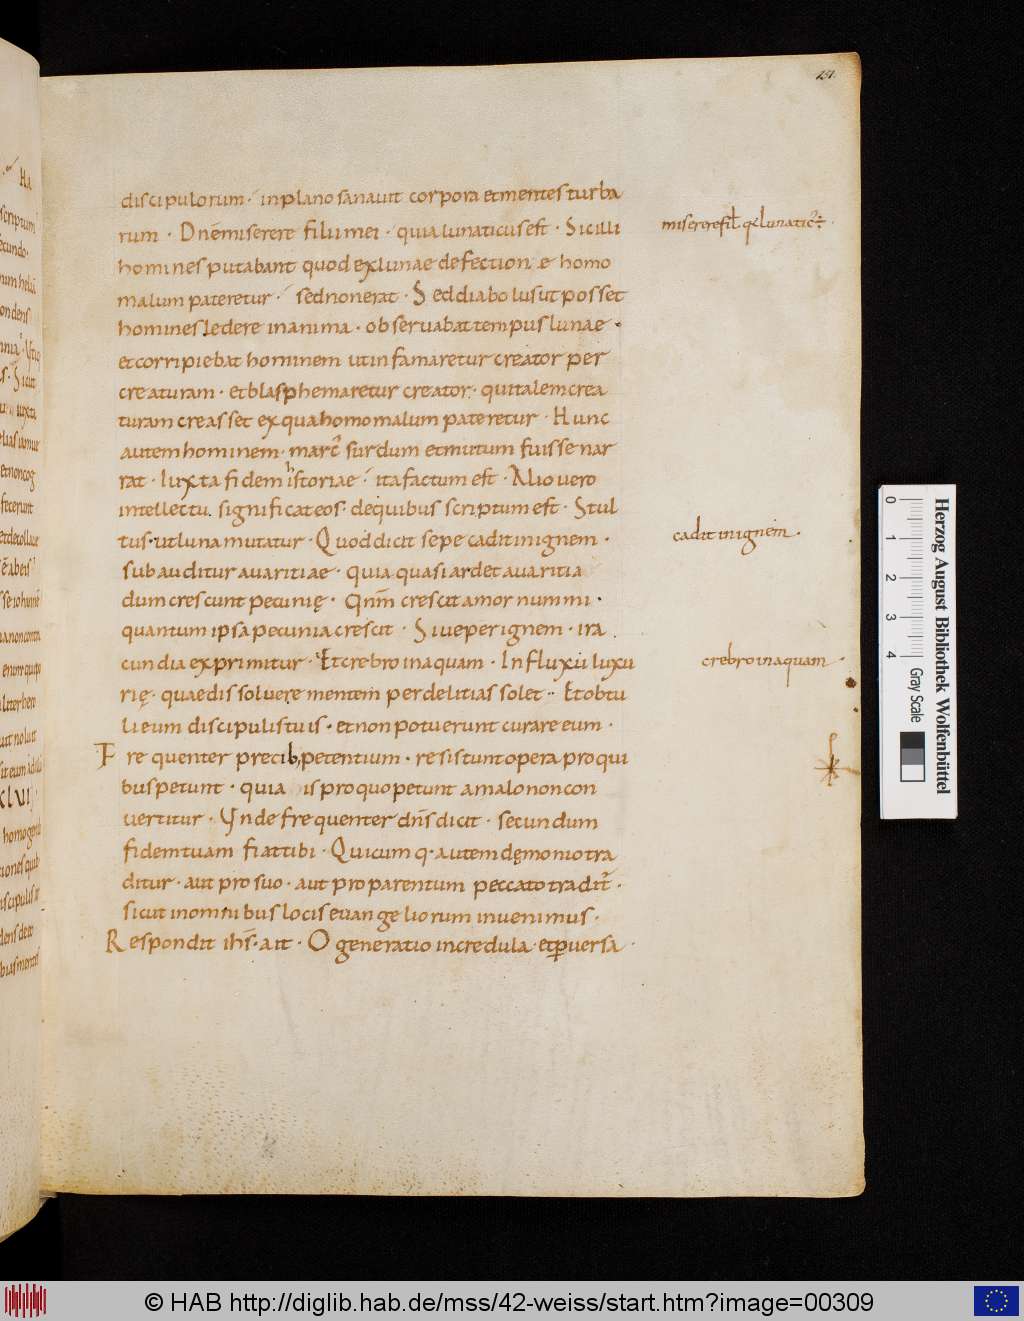 151.
discipulorum · inplano sanauit corpora etmentes turba
rum · Dnē miserere filii mei · quia lunaticus est · Sicilli
homines putabant quod exlunae defection e homo
malum pateretur · sed non erat · Sed diabolus ut posset
homines ledere inanima · obseruabat tempus lunae ·
et corripiebat hominem ut infamaretur creator per
creaturam · et blasphemaretur creator · qui talem crea
turam creasset ex qua homo malum pateretur · Hunc
autem hominem · marc̉ surdum et mutum fuisse nar
rat · Iuxta fidem historiae · ita factum est · Alio uero
intellectu significat eos · de quibus scriptum est · Stul
tus · ut luna mutatur · Quod dicit sepe cadit in ignem ·
subauditur auaritiae · quia quasi ardet auaritia
dum crescunt pecunię · Qnm̄ crescit amor nummi ·
quantum ipsa pecunia crescit · Siue per ignem · ira
cundia exprimitur · Et crebro in aquam · In fluxū luxu
rię · quae dissoluere mentem per delitias solet · Et obtu
li eum discipulis tuis · et non potuerunt curare eum ·
Frequenter precib; petentium · resistunt opera pro qui
bus petunt · quia is pro quo petunt a malo non con
uertitur · Unde frequenter dn̄s dicit · secundum
fidem tuam fiat tibi · Quicumq · autem dęmonio tra
ditur · aut pro suo · aut pro parentum peccato tradit̉ ·
sicut in omnibus locis euangeliorum inuenimus ·
Respondit ihs̄ · ait · O generatio incredula · et ꝑuersa ·
cadit in ignem ·
crebro in aquam ·
0
1
2
3
4
Gray Scale
Herzog August Bibliothek Wolfenbüttel
© HAB http://diglib.hab.de/mss/42-weiss/start.htm?image=00309